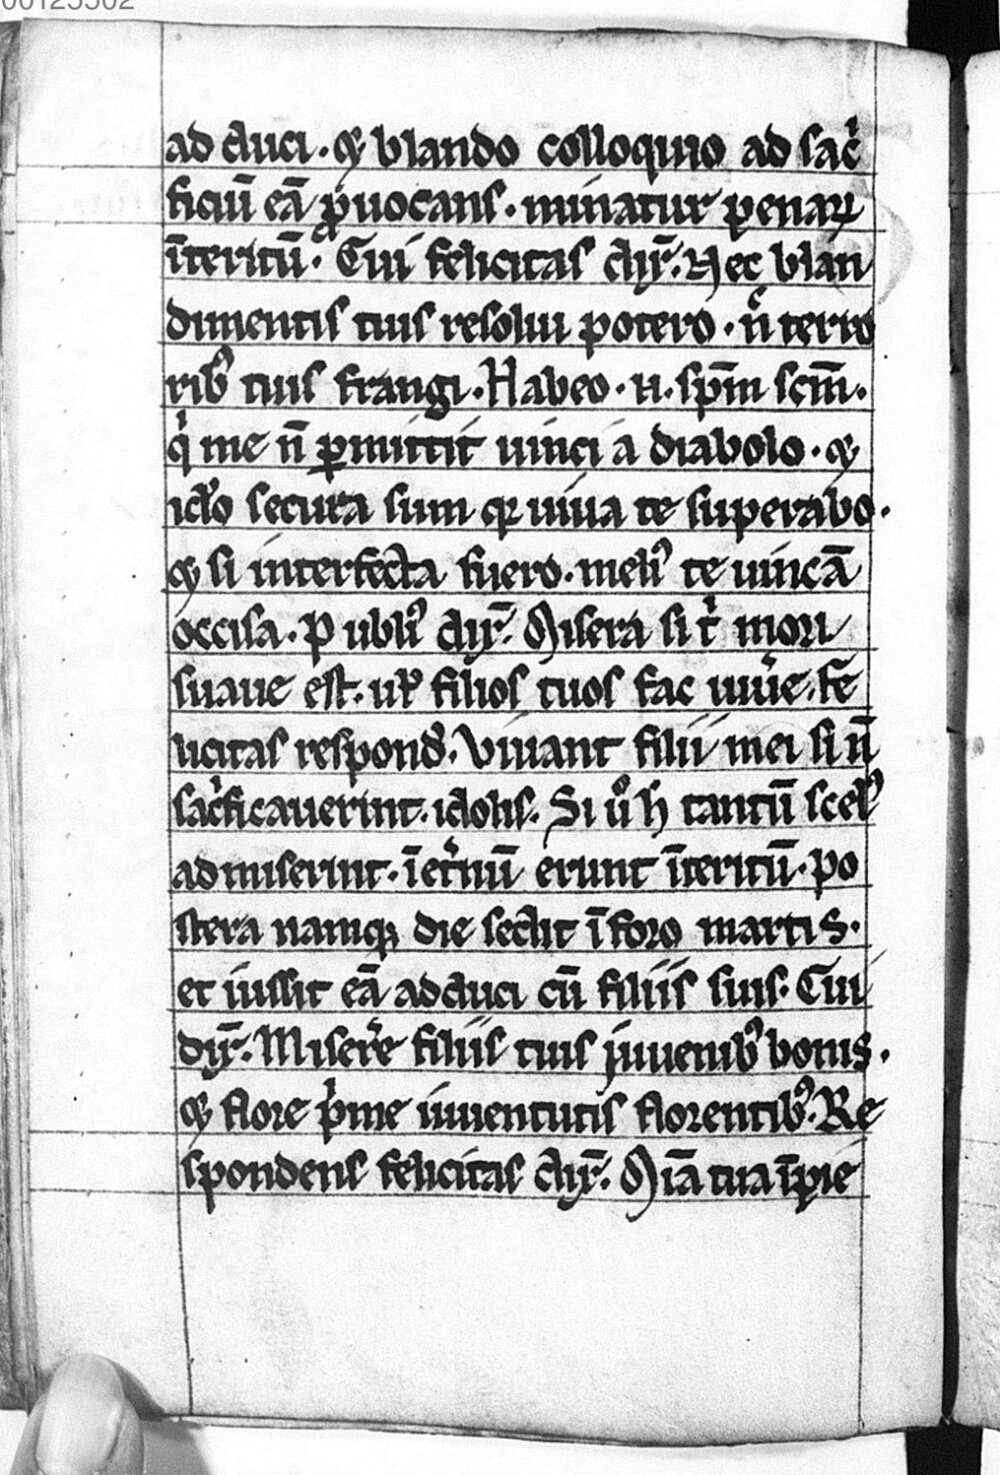 00125502
ad duci. ⁊ blando colloquio ad sacͥ
ficiū eā ꝓuocans. minatur penaꝝ
īteritū. Cui felicitas dix̄. Nec blan
dimentis tuis resolui potero. nͨ terro
ribꝰ tuis frangi. Habeo. n. sp̄m scm̄.
qͥ me n̄ ꝑmittit uinci a diabolo. ⁊
idͦo secura sum qꝛ uiua te superabo.
⁊ si interfecta fuero. meliꝰ te uincā
occisa. Publiꝰ dix̄. Misera si tͥ mori
suaue est. ul̛ filios tuos fac uiue̛. fe
licitas respond̛. Viuant filii mei si n̄
sacͥficauerint. idolis. Si uͦ h tantū scelꝰ
admiserint. ī et̛nū erunt īteritū. po
stera namqꝫ die sedit ī foro martis.
et iussit eā adduci cū filiis suis. Cui
dix̄. Misere̛ filiis tuis iuuenibꝰ bonis.
⁊ flore pͥme iuuentutis florentibꝰ. Re
spondens felicitas dix̄. Mīa tua īpie